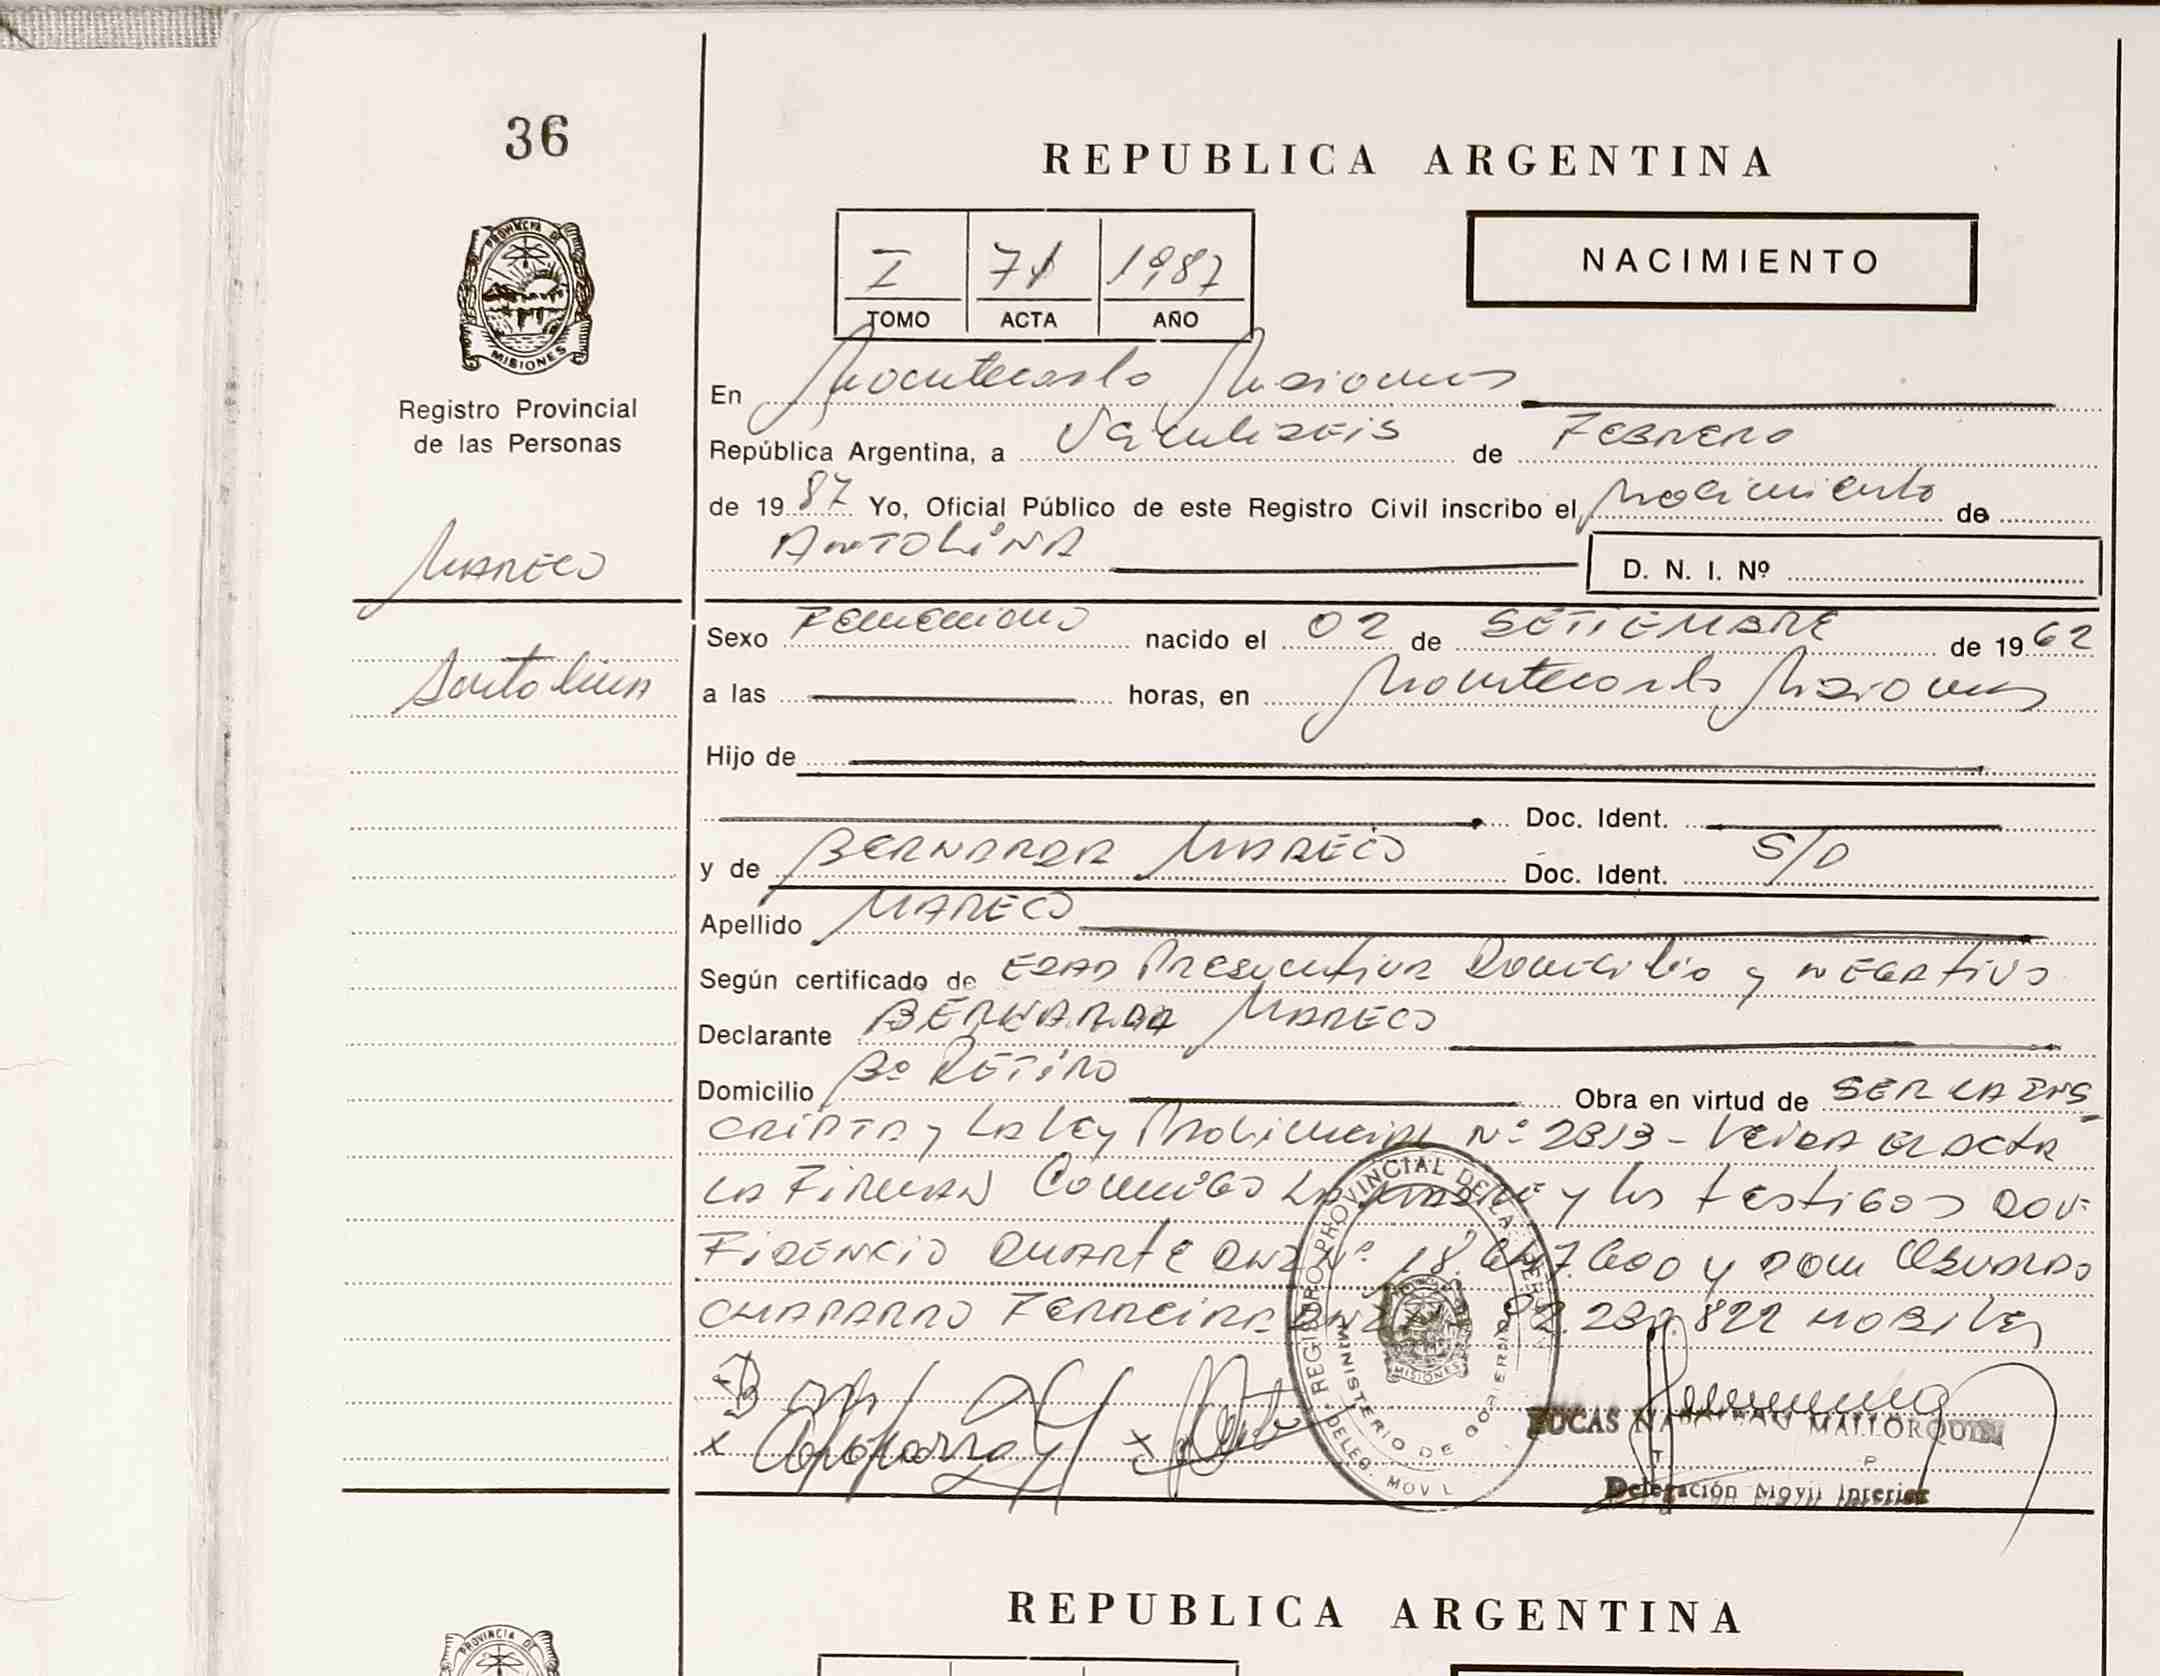 36
REPUBLICA ARGENTINA
PROVINCIA DE
MISIONES
Registro Provincial
de las Personas
I 71 1987
TOMO ACTA AÑO
NACIMIENTO
En Montecarlo Misiones
República Argentina, a Veintiseis de FEBRERO
de 1987 Yo, Oficial Público de este Registro Civil inscribo el Nacimiento de
ANTOLINA
D. N. I. Nº
MARECO
Antolina
Sexo Femenino nacido el 02 de SETIEMBRE de 1962
a las horas, en Montecarlo Misiones
Hijo de
Doc. Ident.
y de BERNARDA MARECO Doc. Ident. S/D
Apellido MARECO
Según certificado de EDAD Presuntiva Domicilio y NEGATIVO
Declarante BERNARDA MARECO
Domicilio Bº RETIRO Obra en virtud de SER LA INS
CRIPTA y LA LEY Provincial Nº 2313 - Leida el ACTA
LA FIRMAN Conmigo LA MADRE y los testigos DON
FIDENCIO DUARTE DNI Nº 18.647.600 y DON OSVALDO
CHAPARRO FERREIRA DNI 92.230.822 HOBILES
REGISTRO PROVINCIAL DE LAS PERS
MINISTERIO DE GOBIERNO
DELEG. MOVIL
MISIONES
LUCAS MALLORQUIN
Delegación Movil Interior
REPUBLICA ARGENTINA
PROVINCIA DE